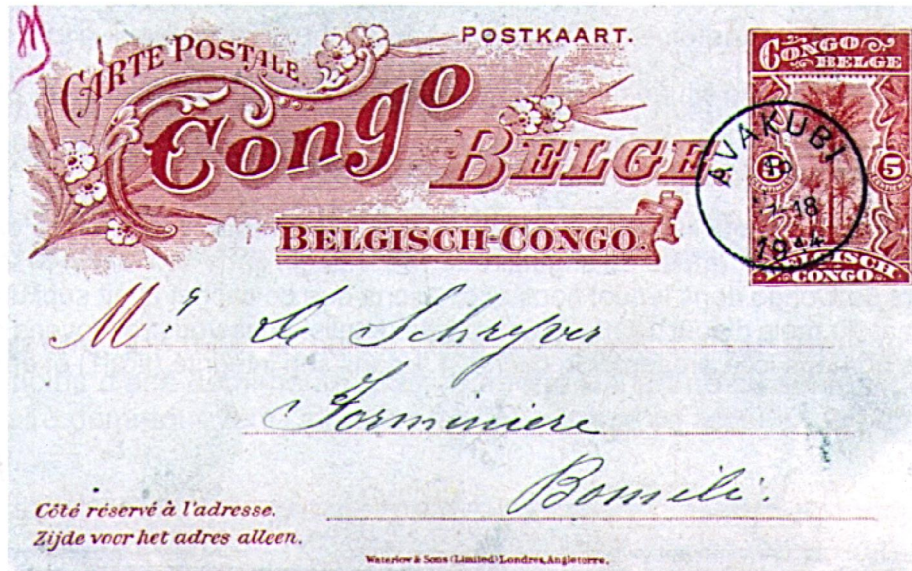 CARTE POSTALE.
POSTKAART.
Congo BELGE
BELGISCH-CONGO.
CONGO BELGE
5 5
CENTIMES CENTIEMEN
BELGISCH CONGO
AVAKUBI
1944
Mr. De Schryver
Forminiere
Bomili.
Côté réservé à l'adresse.
Zijde voor het adres alleen.
Waterlow & Sons (Limited) Londres, Angleterre.